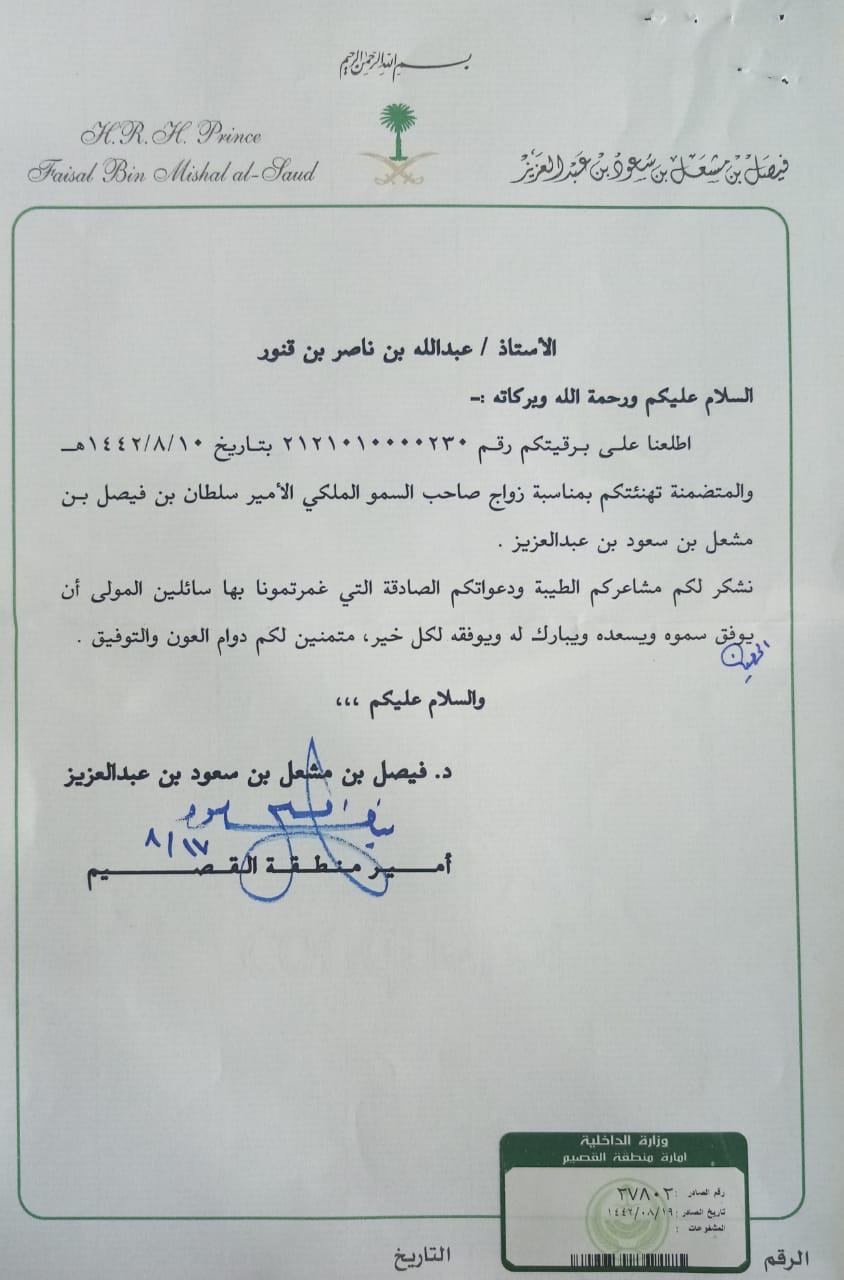 بسم الله الرحمن الرحيم
H.R.H. Prince
Faisal Bin Mishal al-Saud
فيصل بن مشعل بن سعود بن عبد العزيز
الأستاذ / عبدالله بن ناصر بن قنور
السلام عليكم ورحمة الله وبركاته :-
اطلعنا على برقيتكم رقم ٢١٢١٠١٠٠٠٠٢٣٠ بتاريخ ١٤٤٢/٨/١٠هـ
والمتضمنة تهنئتكم بمناسبة زواج صاحب السمو الملكي الأمير سلطان بن فيصل بن
مشعل بن سعود بن عبدالعزيز .
نشكر لكم مشاعركم الطيبة ودعواتكم الصادقة التي غمرتمونا بها سائلين المولى أن
يوفق سموه ويسعده ويبارك له ويوفقه لكل خير، متمنين لكم دوام العون والتوفيق .
والسلام عليكم ،،،
د. فيصل بن مشعل بن سعود بن عبدالعزيز
٨/١٧
أمير منطقة القصيم
وزارة الداخلية
امارة منطقة القصيم
رقم الصادر : ٢٧٨٠٢
تاريخ الصادر : ١٤٤٢/٠٨/١٩
المشفوعات :
الرقم
التاريخ